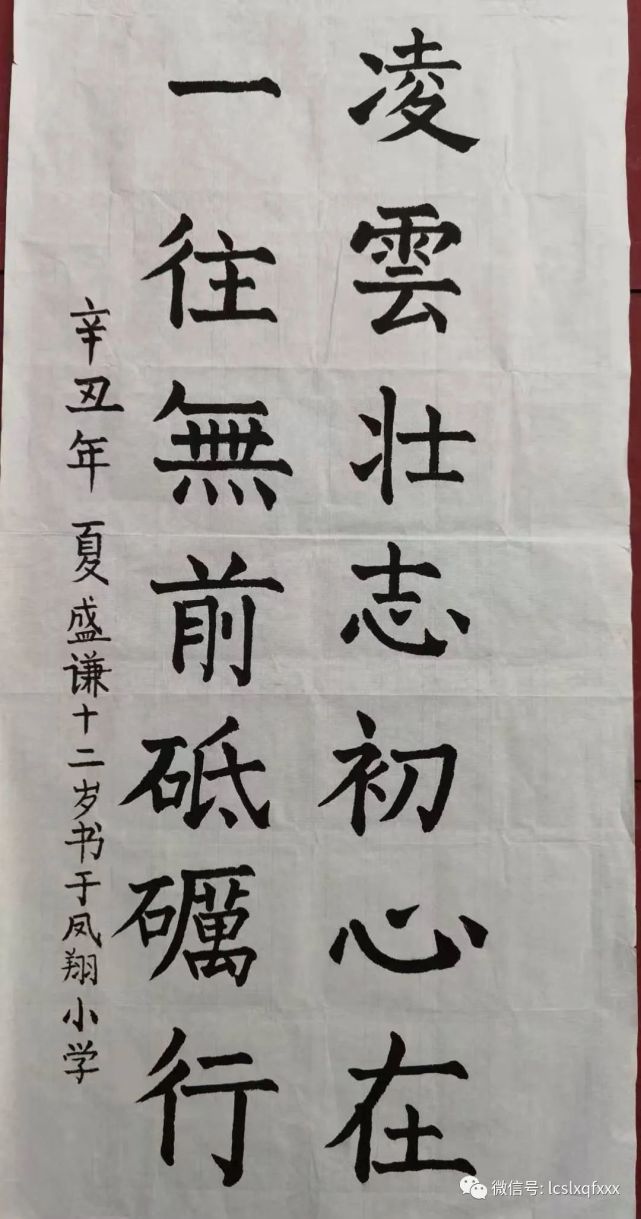 凌雲壮志初心在
一往無前砥礪行
辛丑年 夏盛谦十二岁书于凤翔小学
微信号: lcslxqfxxx